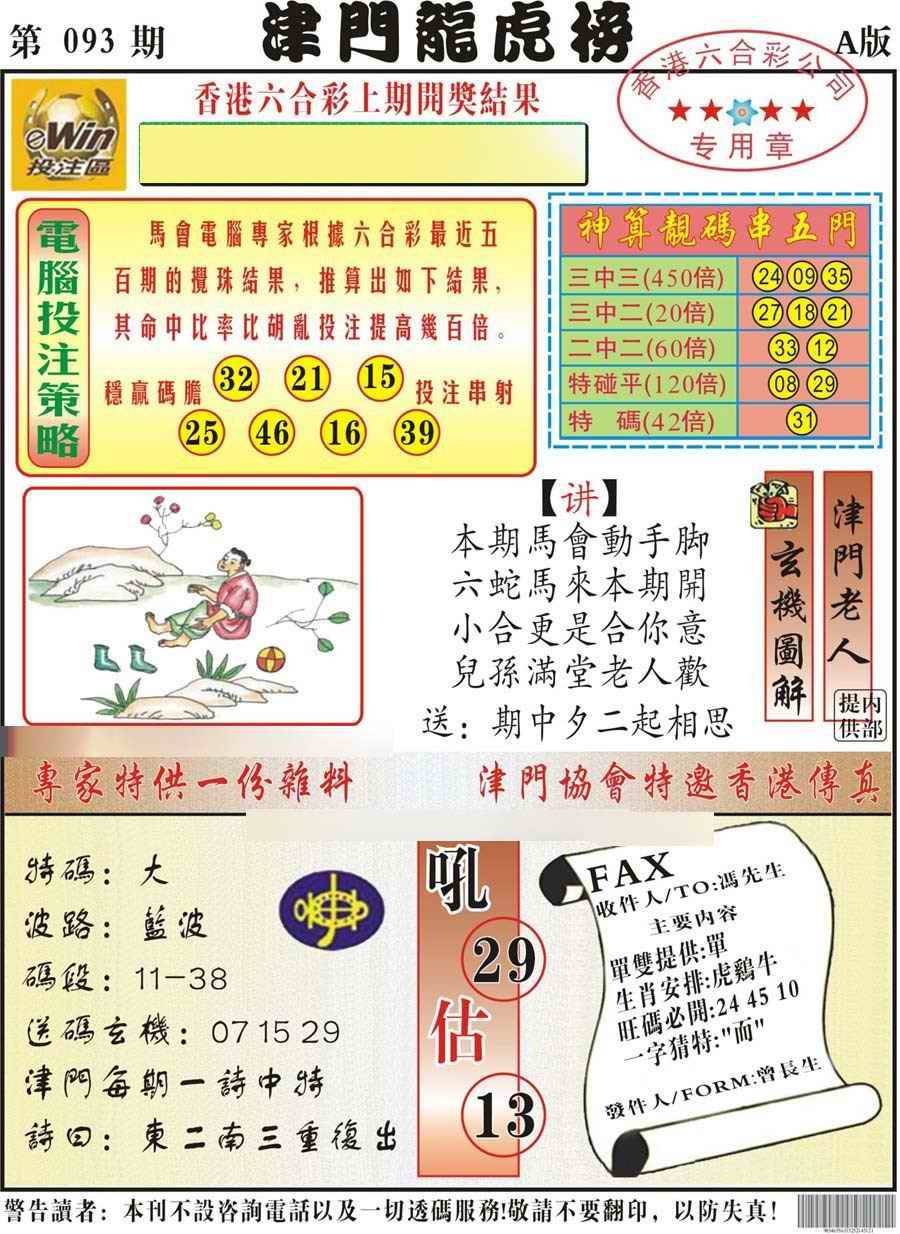 第 093 期
津門龍虎榜
A版
香港六合彩公司
专用章
eWin
投注區
香港六合彩上期開獎結果
電腦投注策略
馬會電腦專家根據六合彩最近五
百期的攪珠結果，推算出如下結果，
其命中比率比胡亂投注提高幾百倍。
穩贏碼膽 32 21 15 投注串射
25 46 16 39
神算靚碼串五門
三中三(450倍) 24 09 35
三中二(20倍) 27 18 21
二中二(60倍) 33 12
特碰平(120倍) 08 29
特 碼(42倍) 31
【讲】
本期馬會動手脚
六蛇馬來本期開
小合更是合你意
兒孫滿堂老人歡
送：期中夕二起相思
玄機圖解
津門老人
内部提供
專家特供一份雜料
津門協會特邀香港傳真
特碼：大
波路：藍波
碼段：11-38
送碼玄機：07 15 29
津門每期一詩中特
詩曰：東二南三重復出
吼
29
估
13
FAX
收件人/TO:馮先生
主要内容
單雙提供:單
生肖安排:虎鷄牛
旺碼必開:24 45 10
一字猜特:"而"
發件人/FORM:曾長生
警告讀者：本刊不設咨詢電話以及一切透碼服務!敬請不要翻印，以防失真！